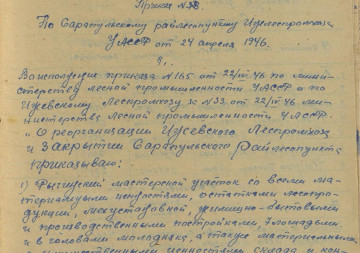 Приказ №38
По Сарапульскому райлеспункту Ижлеспромхоза
УАССР от 24 апреля 1946.
§1.
Во исполнение приказа №165 от 22/IV 46 по мини-
стерству лесной промышленности УАССР и по
Ижевскому Леспромхозу № 33 от 22/IV 46 ми-
нистерства Лесной промышленности УАССР.
"О реорганизации Ижевского Леспромхоза
и Закрытии Сарапульского Райлеспункта
приказываю:
1) мастерский участок со всеми ма-
териальными ценностями, остатками лесопро-
дукции, жилищно-бытовыми
и производственными постройками, площадью
и в головами молодняка, а также материальными
ценностями склада и кон-